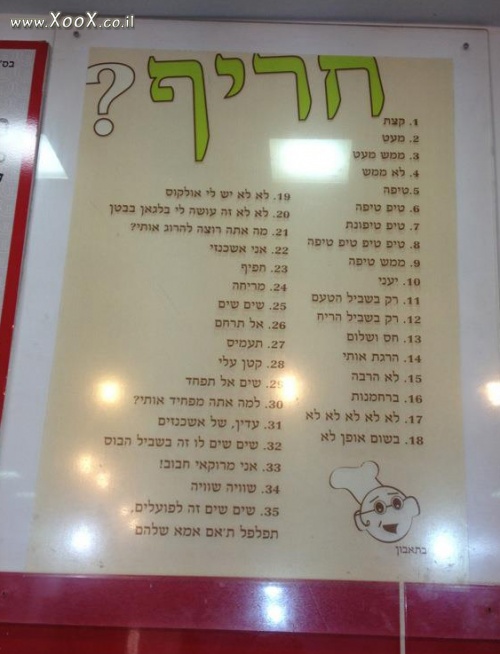 www.XooX.co.il
בס"
חריף?
1. קצת
2. מעט
3. ממש מעט
4. לא ממש
5. טיפה
6. טיפ טיפה
7. טיפ טיפונת
8. טיפ טיפ טיפ טיפה
9. ממש טיפה
10. יעני
11. רק בשביל הטעם
12. רק בשביל הריח
13. חס ושלום
14. הרגת אותי
15. לא הרבה
16. ברחמנות
17. לא לא לא לא לא
18. בשום אופן לא
19. לא לא יש לי אולקוס
20. לא לא זה עושה לי בלגאן בבטן
21. מה אתה רוצה להרוג אותי?
22. אני אשכנזי
23. חפיף
24. מריחה
25. שים שים
26. אל תרחם
27. תעמיס
28. קטן עלי
29. שים אל תפחד
30. למה אתה מפחיד אותי?
31. עדין, של אשכנזים
32. שים שים לו זה בשביל הבוס
33. אני מרוקאי חבוב!
34. שוויה שוויה
35. שים שים זה לפועלים,
תפלפל ת'אם אמא שלהם
בתאבון